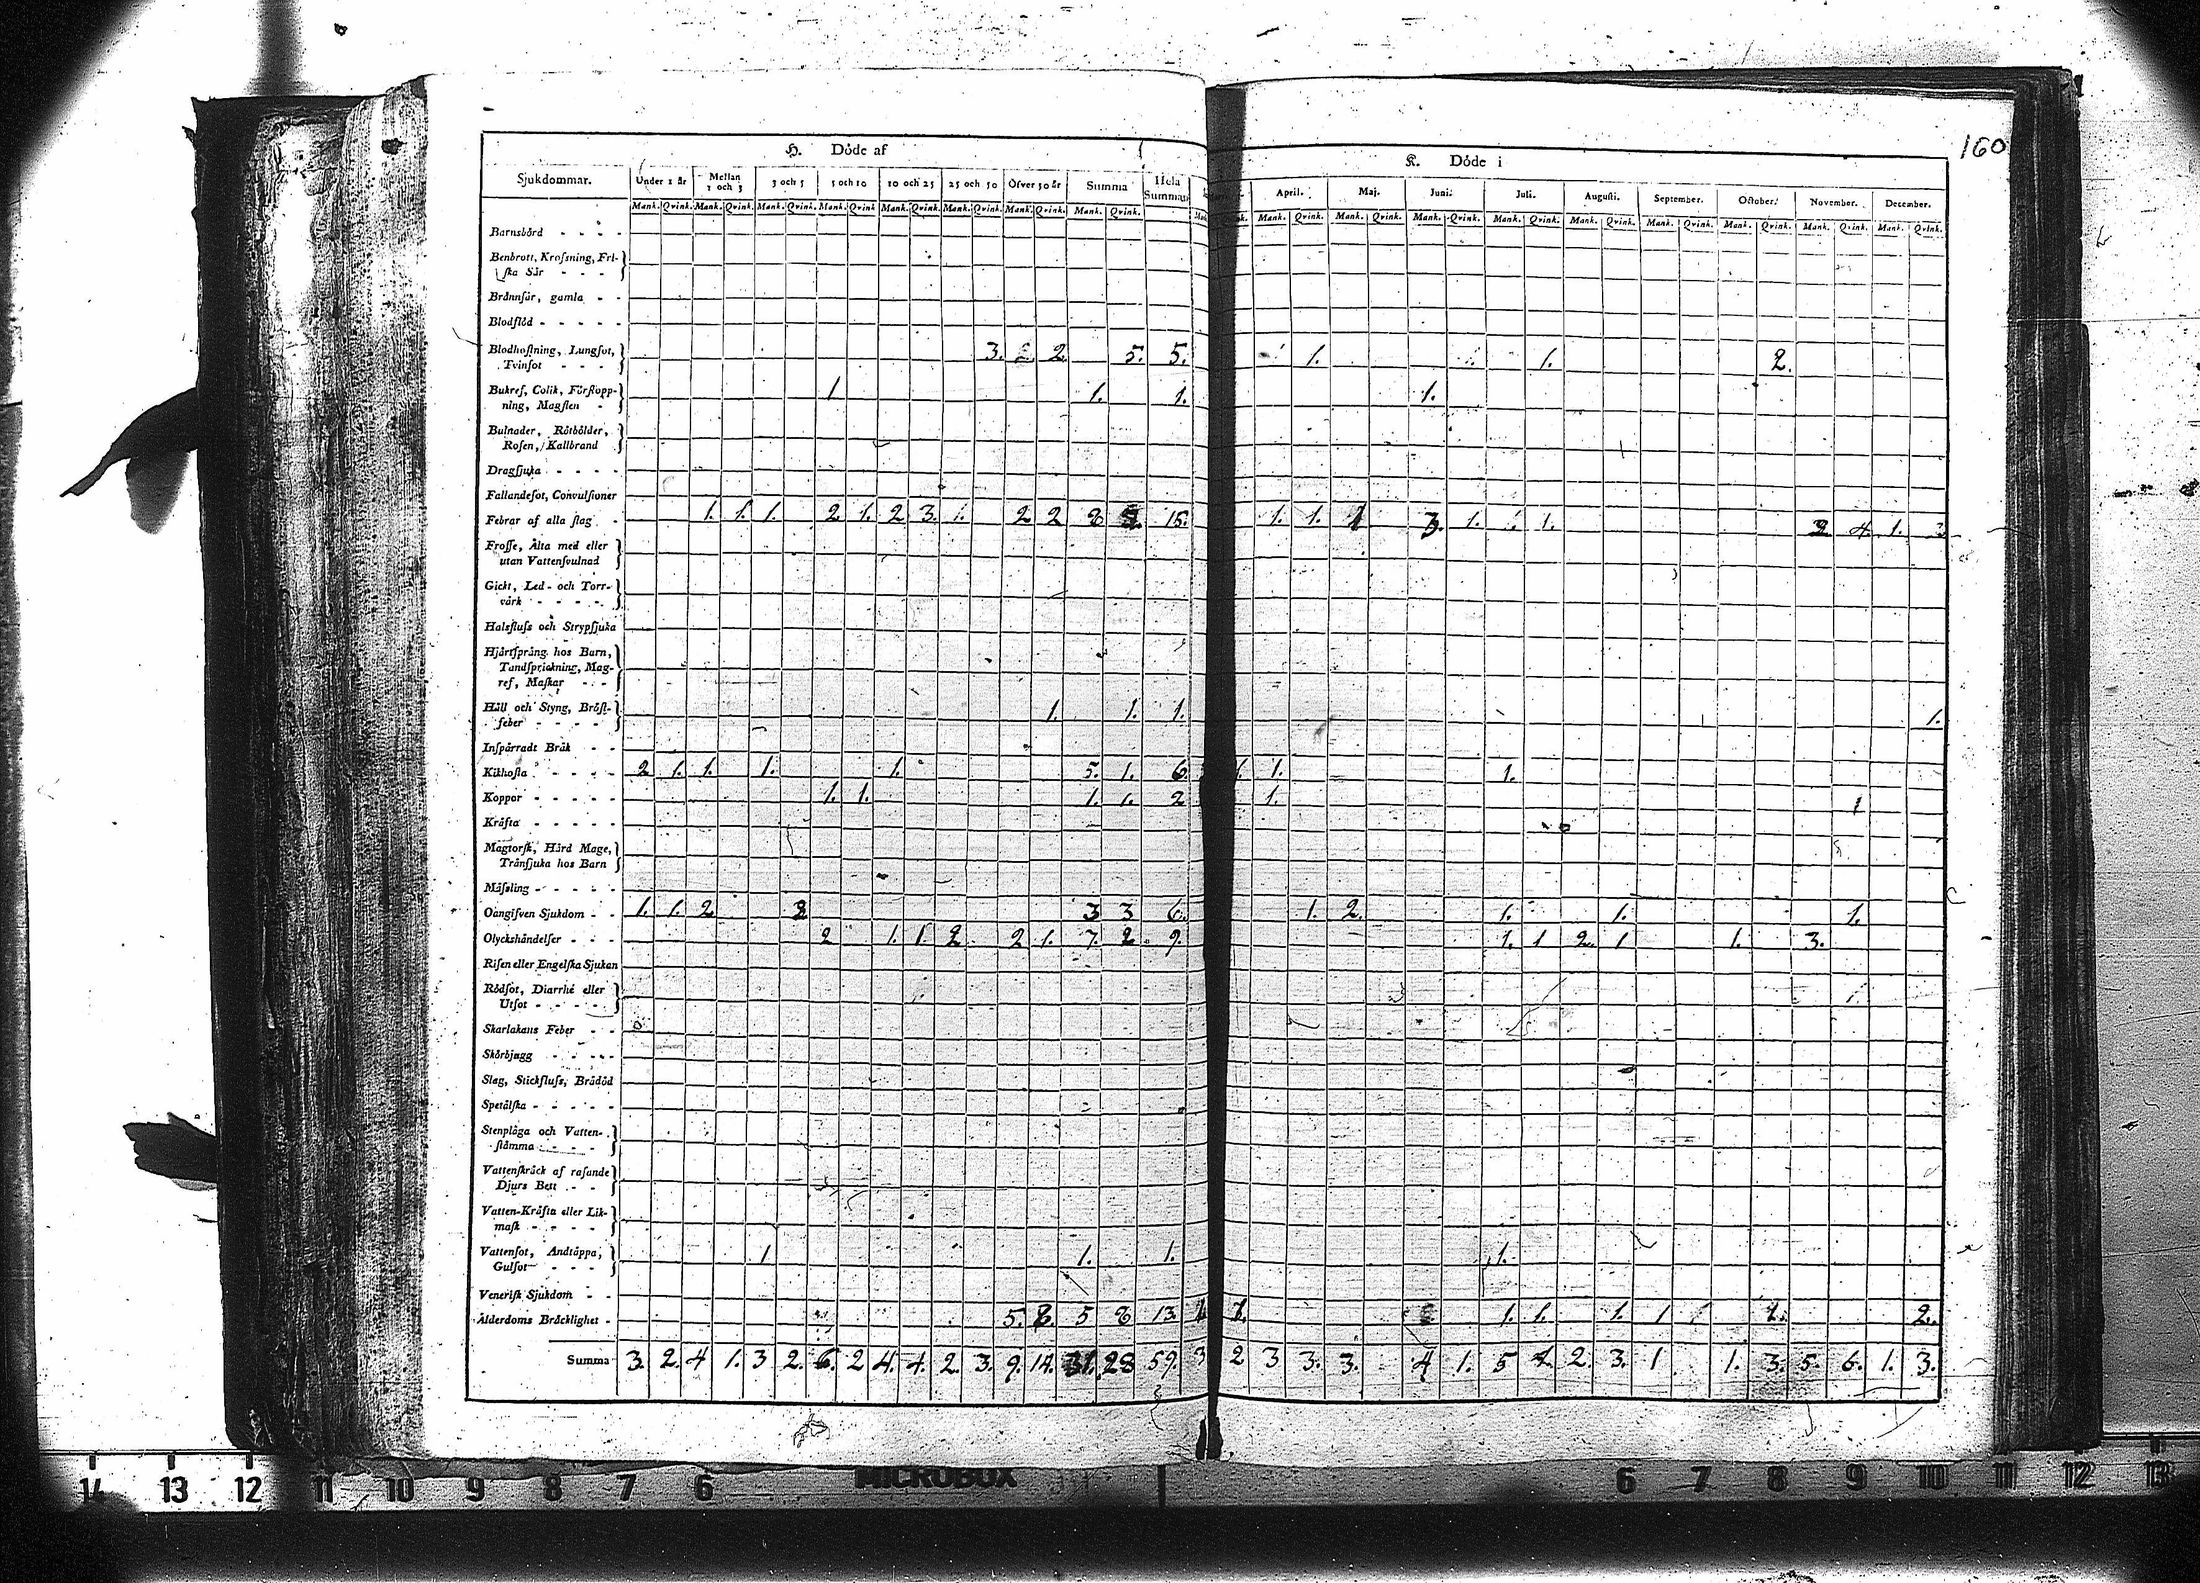 160
H. Döde af
K. Döde i
Sjukdommar. Under 1 år Mellan 1 och 3 3 och 5 5 och 10 10 och 25 25 och 50 Öfver 50 år Summa Hela Summan
April. Maj. Juni. Juli. Augusti. September. October. November. December.
Mank. Qvink. Mank. Qvink. Mank. Qvink. Mank. Qvink. Mank. Qvink. Mank. Qvink. Mank. Qvink. Mank. Qvink.
Mank. Qvink. Mank. Qvink. Mank. Qvink. Mank. Qvink. Mank. Qvink. Mank. Qvink. Mank. Qvink. Mank. Qvink. Mank. Qvink.
Barnsbörd - - - -
Benbrott, Krosning, Fri-
ska Sår - - -
Brännsår, gamla - -
Blodflöd - - - - -
Blodhostning, Lungsot,
Tvinsot - - - 3. 2 5. 5. 1. 1. 2.
Bukref, Colik, Förstopp-
ning, Magsten - 1 1. 1. 1.
Bulnader, Rötbölder,
Rosen, Kallbrand
Dragsjuka - - - -
Fallandesot, Convulsioner
Febrar af alla slag - 1. 1. 1. 2 1. 2 3. 1. 2 2 8 15. 1. 1. 1 3. 1. 1. 4. 1. 3
Frosse, Älta med eller
utan Vattensvulnad
Gickt, Led- och Torr-
värk - - - -
Halsfluss och Strypsjuka
Hjärtsprång hos Barn,
Tandsprickning, Mag-
ref, Maskar - - -
Håll och Styng, Bröst-
feber - - - - 1. 1. 1. 1.
Inspärradt Bråk - -
Kikhosta - - - - 2 1. 1. 1. 1. 5. 1. 6. 1. 1. 1.
Koppor - - - - - 1. 1. 1. 1. 2 1. 1
Kräfta - - - - -
Magtorsk, Hård Mage,
Trånsjuka hos Barn
Mässling - - - - -
Oangifven Sjukdom - - 1. 1. 2 2 3 3 6. 1. 2. 1. 1. 1.
Olyckshändelser - - - 2 1. 1 2 2 1. 7. 2. 9. 1. 1 2. 1 1. 3.
Risen eller Engelska Sjukan
Rödsot, Diarrhé eller
Utsot - - - - -
Skarlakans Feber - -
Skörbjugg - - - -
Slag, Stickfluss, Brådöd
Spetälska - - - - -
Stenplåga och Vatten-
stämma - - - -
Vattenskräck af rasande
Djurs Bett - - -
Vatten-Kräfta eller Lik-
mask - - - -
Vattensot, Andtäppa,
Gulsot - - - 1 1. 1. 1.
Venerisk Sjukdom - -
Ålderdoms Bräcklighet - 5. 8. 5 8 13. 1. 1. 1. 1 2.
Summa 3. 2. 4 1. 3 2. 6. 2 4. 4. 2. 3. 9. 14. 31. 28 59. 3 2 3 3. 3. 4 1. 5 4. 2. 3. 1 1. 3. 5. 6. 1. 3.
14 13 12 11 10 9 8 7 6 MICROBOX 6 7 8 9 10 11 12 13